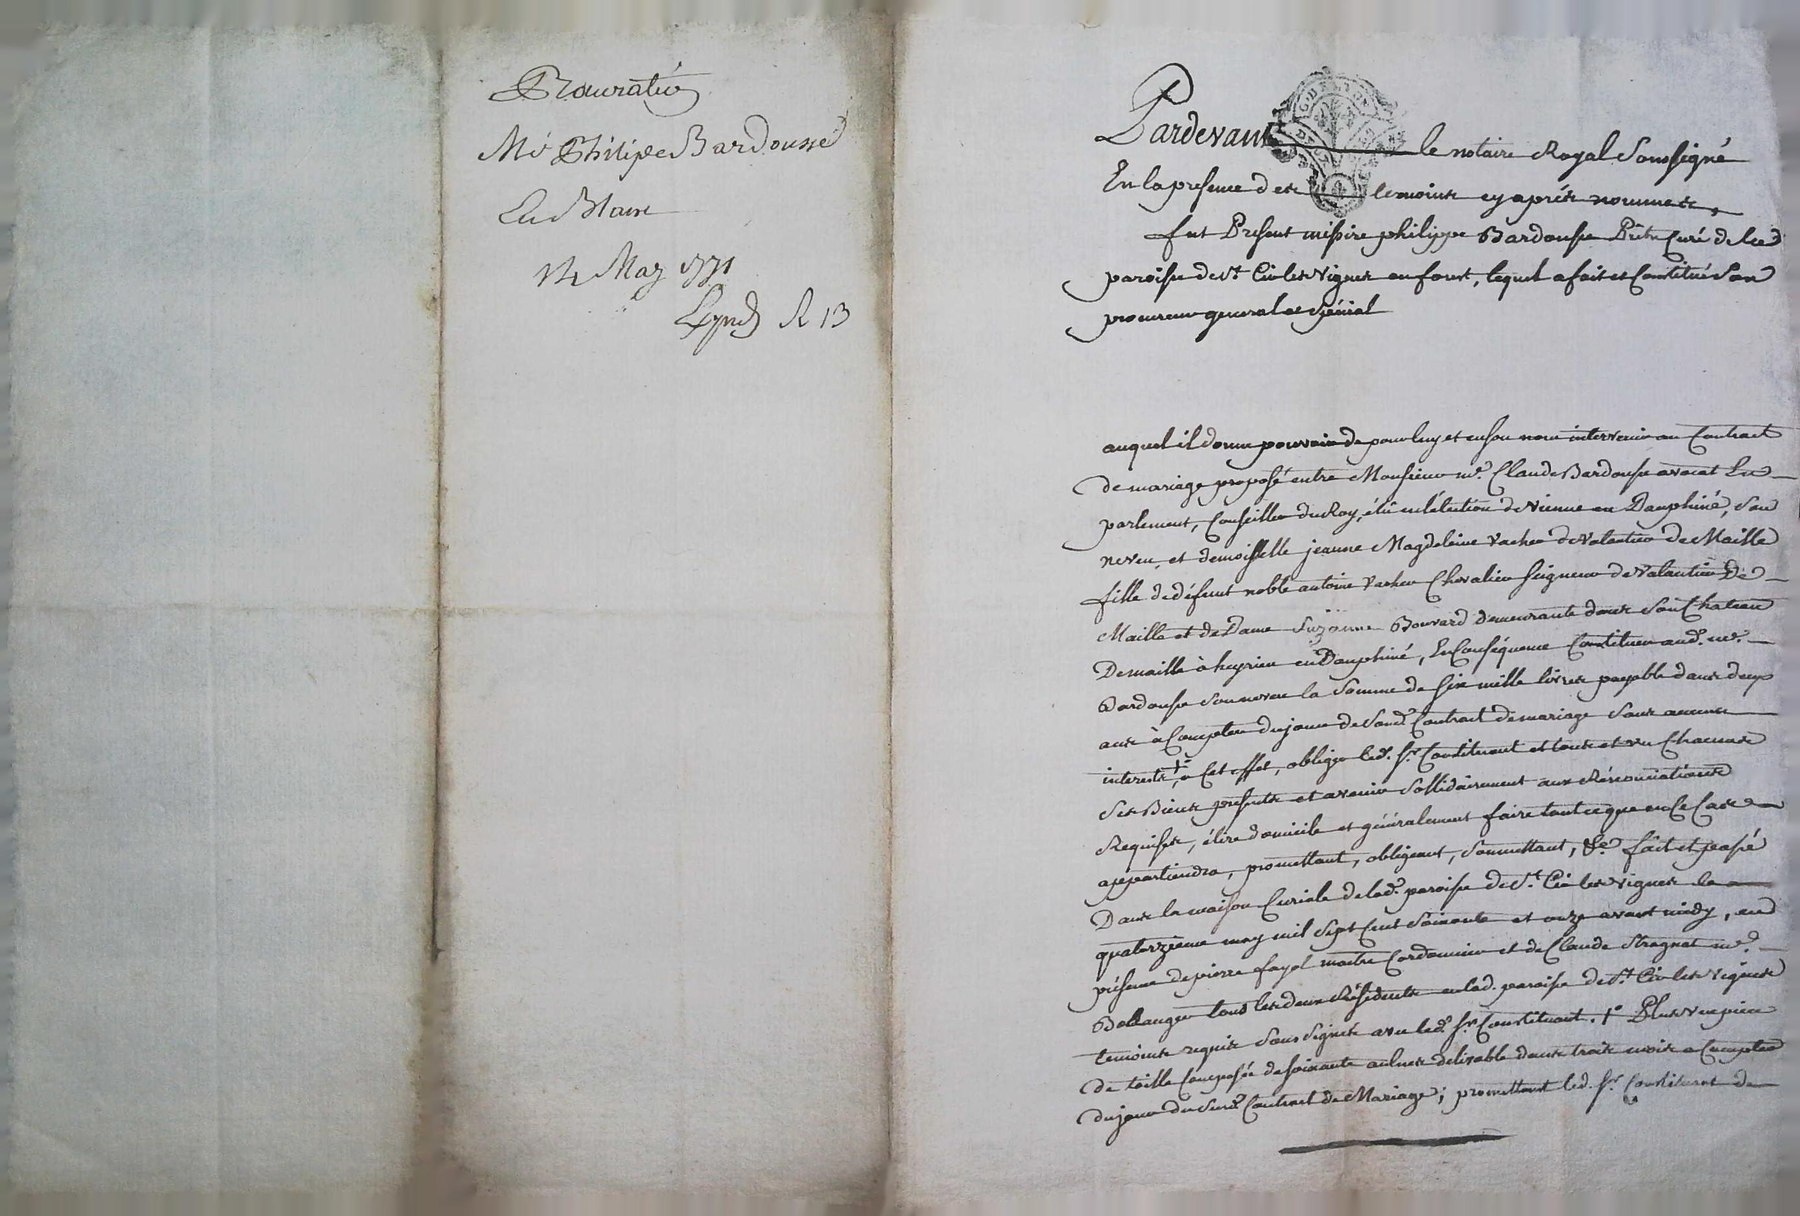 Procuration
Mr Philipe Bardousse
En Blanc
14 May 1771
R 13
Pardevant le notaire Royal Soussigné
En la presence des temoins cy après nommes,
fut Present messire philippe Bardousse Prêtre Curé de la
paroisse de St. Cir les Vignes en forest, lequel a fait et Constitué Son
procureur general et spécial
auquel il donne pouvoir de pour luy et en son nom intervenir au Contract
de mariage proposé entre Monsieur me. Claude Bardousse avocat En
parlement, Conseiller du Roy, élu en l'élection de Vienne en Dauphiné, Son
neveu, et demoiselle jeanne Magdeleine Vacher de Valentier De Maille
fille de défunt noble antoine Vacher Chevalier seigneur de Valantier De
Maille et de Dame Suzanne Bouvard demeurante dans Son Chateau
De maille à heyrieu en Dauphiné, En Conséquence Constituer aud. me.
Bardousse Son neveu la Somme de Six mille livres payable dans deux
ans à Compter du jour de Sond. Contract de mariage Sans aucuns
interests, + à Cet effet, obliger led. Sr. Constituant et tous et un Chacuns
Ses Biens presents et avenir Sollidairement aux Rénonciations
Requises, élire domicile et généralement faire tout ce que en Ce Cas
appartiendra, promettant, obligeant, Soumettant, &c. fait et passé
Dans la maison Curiale de lad. paroisse de St. Cir les Vignes le
quatorzieme may mil Sept Cent Soixante et onze avant midy, en
présence de pierre fayol maitre Cordonnier et de Claude me.
Bollanger tous les deux Résidents en lad. paroisse de St. Cir les Vignes
temoins requis Soussignés avec led. Sr. Constituant. + Plus une piece
de toille Composée de soixante aulnes delivrable dans trois mois a Compter
du jour du Sud. Contract de Mariage; promettant led. Sr. Constituant de